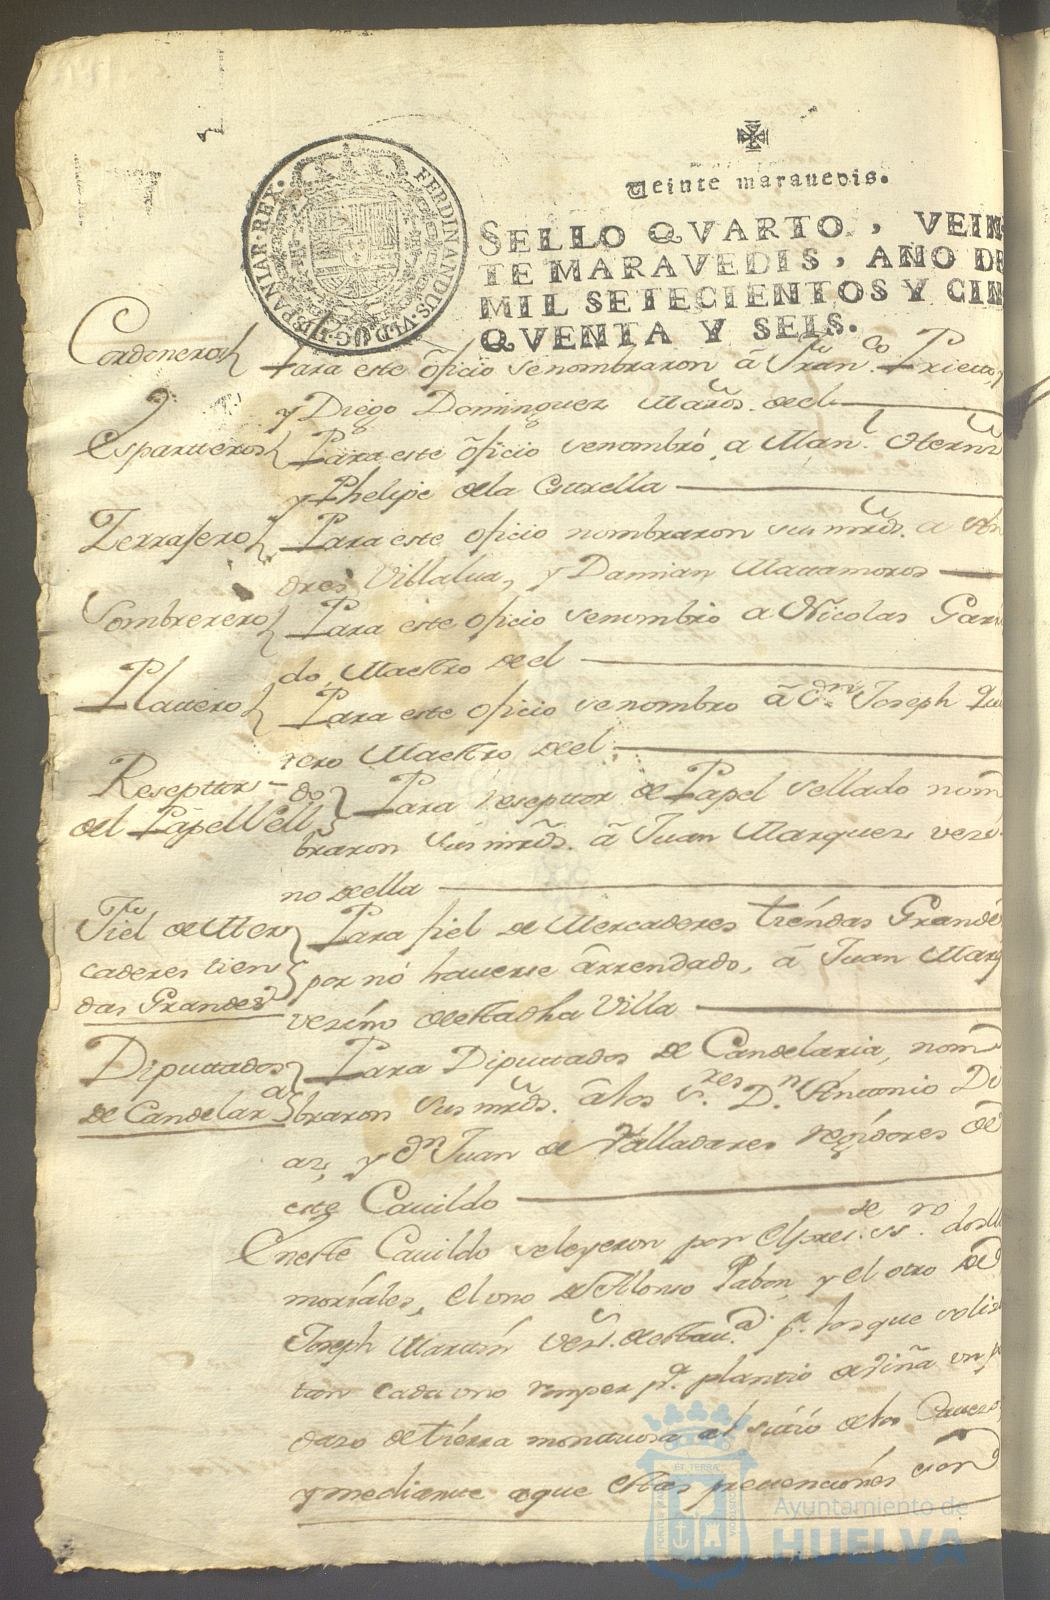 FERDINANDUS·VI·D·G·HISPANIAR·REX·
Veinte marauedis.
SELLO QVARTO, VEIN
TE MARAVEDIS, AÑO DE
MIL SETECIENTOS Y CIN
QVENTA Y SEIS.
Cordoneros Para este õficio senombraron â Fran.co Prieto,
y Diego Dominguez Maros. de el
Esparteros Para este õficio senombró a Man.l Hernz
y Phelipe dela
Para este oficio nombraron sus mrds. a An
dres Villalua, y Damian Matamoros
Sombrerero Para este oficio senombro a Nicolas Garri
do, Maestro de el
Platero Para este oficio senombro â Dn. Joseph
rero Maestro de el
Reseptor
del Papel Sell
do Para reseptor de Papel Sellado nom
braron sus mrds. â Juan Marquez vezi
no de ella
Fiel de Mer
caderes tien
das Grandes
Para fiel de Mercaderes tiendas Grandes
por nó hauerse ârrendado, â Juan Marq
vezino deesta dha Villa
Diputados
de Candelara
Para Diputados de Candelaria, nom
braron sus mrds. âlos s.res D.n Antonio Di
az, y Dn Juan de Valladares regidores de
este Cauildo
Eneste Cauildo seleyeron por el pres.te ss.no dos Me
moriales, el uno de Alonso Pabon, y el otro de
Joseph Martín vez.s deesta v.a p.r los que solici
tan cada uno romper p.a plantio de viña un pe
dazo de tierra montuosa al sitio delos
y mediante aque estas pretenciones
Ayuntamiento de
HUELVA